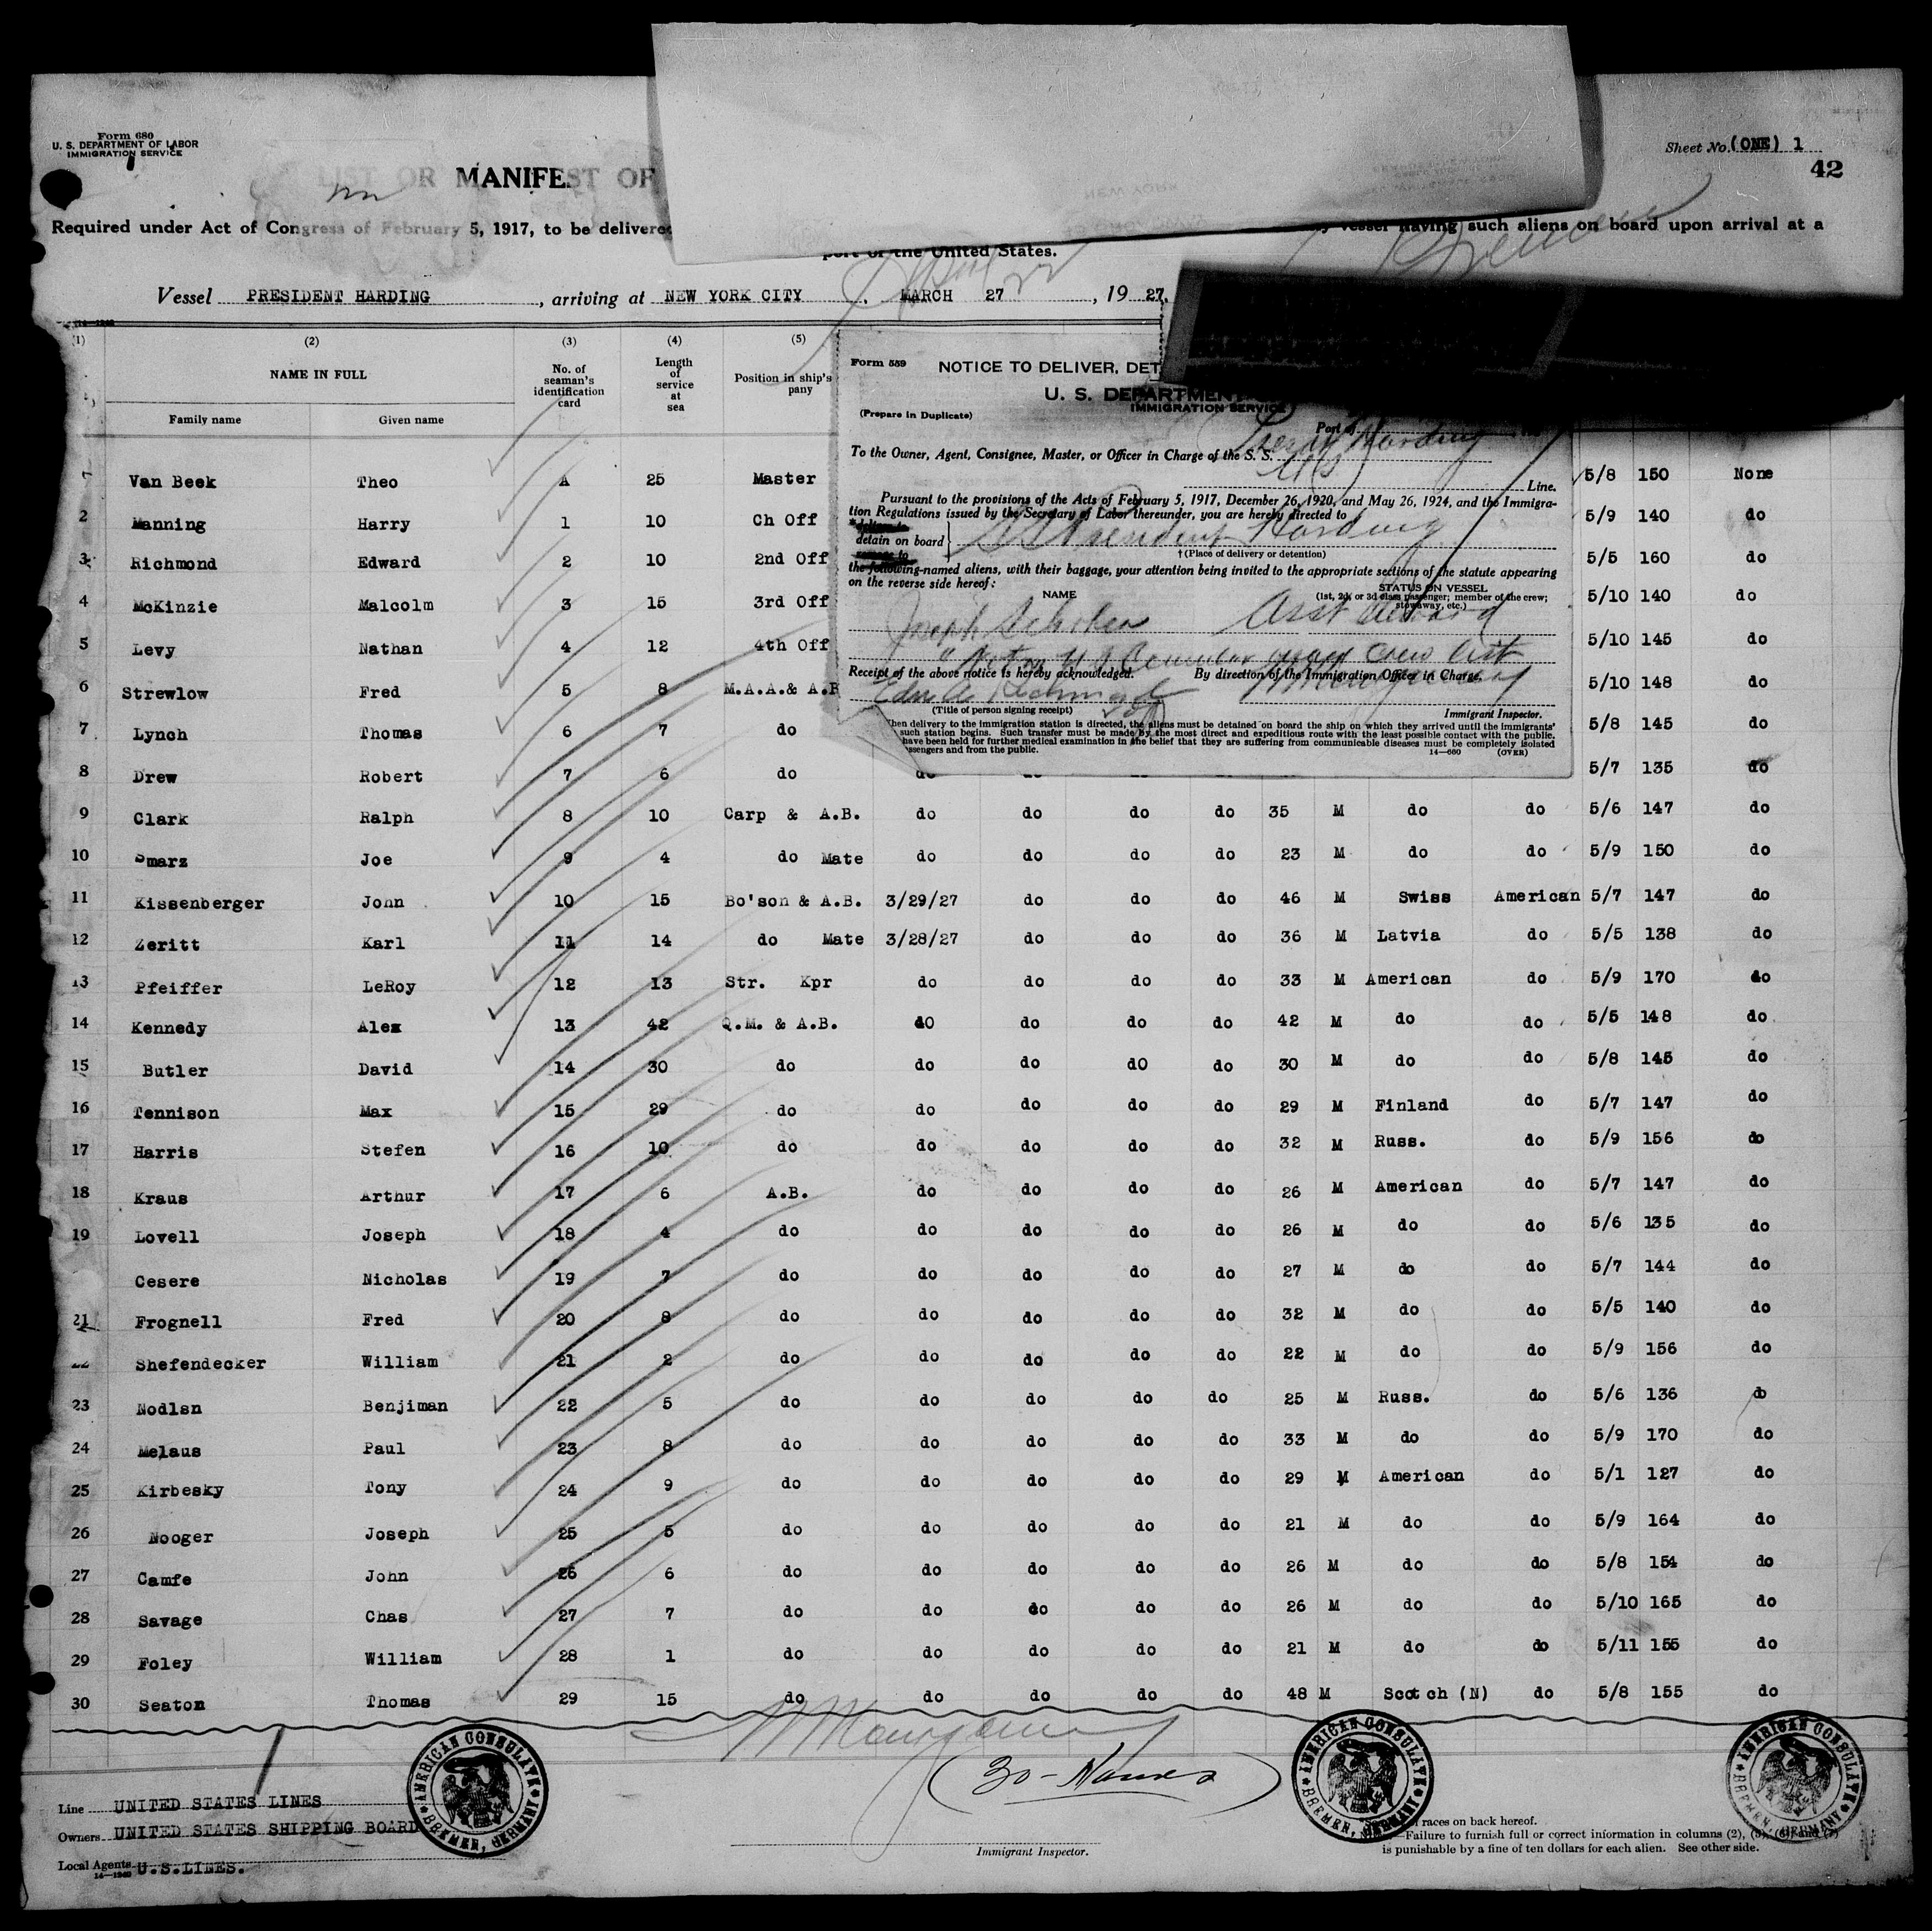 Form 680
U. S. DEPARTMENT OF LABOR
IMMIGRATION SERVICE
Sheet No. (ONE) 1
42
LIST OR MANIFEST OF
Required under Act of Congress of February 5, 1917, to be delivered
vessel having such aliens on board upon arrival at a
port of the United States.
Vessel PRESIDENT HARDING , arriving at NEW YORK CITY , MARCH 27 , 19 27.
(1) (2) (3) (4) (5)
NAME IN FULL No. of seaman's identification card Length of service at sea Position in ship's pany
Family name Given name
Form 559
NOTICE TO DELIVER, DET
U. S. DEPARTMENT
IMMIGRATION SERVICE
(Prepare in Duplicate)
Port of
To the Owner, Agent, Consignee, Master, or Officer in Charge of the S. S. Harding
Line.
Pursuant to the provisions of the Acts of February 5, 1917, December 26, 1920, and May 26, 1924, and the Immigra-
tion Regulations issued by the Secretary of Labor thereunder, you are hereby directed to
detain on board SS President Harding
† (Place of delivery or detention)
the following-named aliens, with their baggage, your attention being invited to the appropriate sections of the statute appearing
on the reverse side hereof:
NAME STATUS ON VESSEL
(1st, 2d, or 3d class passenger; member of the crew;
stowaway, etc.)
Joseph Asst Steward
Not on U S Consular Crew List
Receipt of the above notice is hereby acknowledged. By direction of the Immigration Officer in Charge.
(Title of person signing receipt) Immigrant Inspector.
hen delivery to the immigration station is directed, the aliens must be detained on board the ship on which they arrived until the immigrants'
such station begins. Such transfer must be made by the most direct and expeditious route with the least possible contact with the public.
have been held for further medical examination in the belief that they are suffering from communicable diseases must be completely isolated
ssengers and from the public.
14—680 (OVER)
Van Beek Theo A 25 Master 5/8 150 None
2 Manning Harry 1 10 Ch Off 5/9 140 do
3 Richmond Edward 2 10 2nd Off 5/5 160 do
4 McKinzie Malcolm 3 15 3rd Off 5/10 140 do
5 Levy Nathan 4 12 4th Off 5/10 145 do
6 Strewlow Fred 5 8 M.A.A.& A.B 5/10 148 do
7 Lynch Thomas 6 7 do 5/8 145 do
8 Drew Robert 7 6 do do 5/7 135 do
9 Clark Ralph 8 10 Carp & A.B. do do do do 35 M do do 5/6 147 do
10 Smarz Joe 9 4 do Mate do do do do 23 M do do 5/9 150 do
11 Kissenberger John 10 15 Bo'son & A.B. 3/29/27 do do do 46 M Swiss American 5/7 147 do
12 Zeritt Karl 11 14 do Mate 3/28/27 do do do 36 M Latvia do 5/5 138 do
13 Pfeiffer LeRoy 12 13 Str. Kpr do do do do 33 M American do 5/9 170 do
14 Kennedy Alex 13 42 Q.M. & A.B. dO do do do 42 M do do 5/5 148 do
15 Butler David 14 30 do do do dO do 30 M do do 5/8 145 do
16 Tennison Max 15 29 do do do do do 29 M Finland do 5/7 147 do
17 Harris Stefen 16 10 do do do do do 32 M Russ. do 5/9 156 do
18 Kraus Arthur 17 6 A.B. do do do do 26 M American do 5/7 147 do
19 Lovell Joseph 18 4 do do do do do 26 M do do 5/6 135 do
Cesere Nicholas 19 7 do do do do do 27 M do do 5/7 144 do
21 Frognell Fred 20 8 do do do do do 32 M do do 5/5 140 do
22 Shefendecker William 21 2 do do do do do 22 M do do 5/9 156 do
23 Nodlsn Benjiman 22 5 do do do do do 25 M Russ. do 5/6 136 do
24 Melaus Paul 23 8 do do do do do 33 M do do 5/9 170 do
25 Kirbesky Tony 24 9 do do do do do 29 M American do 5/1 127 do
26 Nooger Joseph 25 5 do do do do do 21 M do do 5/9 164 do
27 Camfe John 26 6 do do do do do 26 M do do 5/8 154 do
28 Savage Chas 27 7 do do do do do 26 M do do 5/10 165 do
29 Foley William 28 1 do do do do do 21 M do do 5/11 155 do
30 Seaton Thomas 29 15 do do do do do 48 M Scotch (N) do 5/8 155 do
(30 - Names)
AMERICAN CONSULATE BREMEN, GERMANY
AMERICAN CONSULATE BREMEN, GERMANY
AMERICAN CONSULATE BREMEN, GERMANY
Line UNITED STATES LINES
Owners UNITED STATES SHIPPING BOARD
Local Agents U.S.LINES.
14—1240
Immigrant Inspector.
races on back hereof.
Failure to furnish full or correct information in columns (2), (5), (6) and (7)
is punishable by a fine of ten dollars for each alien. See other side.